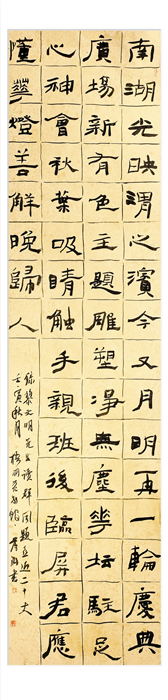 南湖光映渭之濱今又月明再一輪慶典
廣場新有色主題雕塑淨無塵華坛駐足
心神會秋葉吸睛触手親班後臨屏君應
懂華燈善解晚歸人
文明先生讀群
壬寅秋月